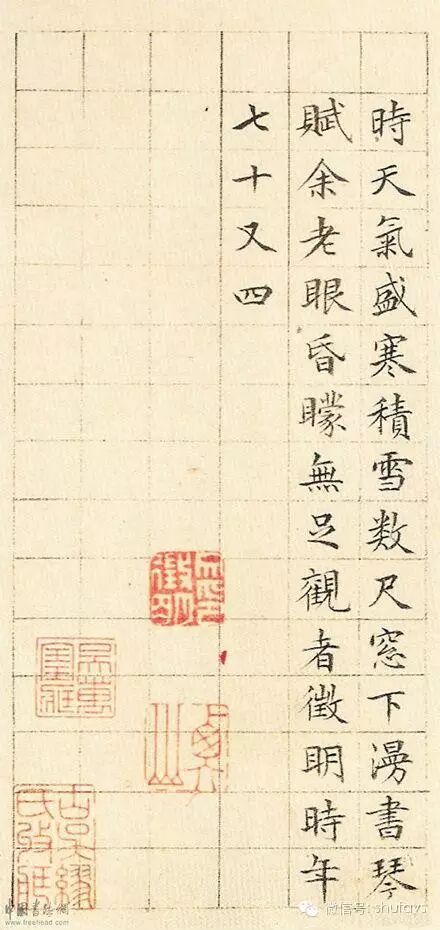 時天氣盛寒積雪数尺窓下漫書琴
賦余老眼昏矇無足觀者徵明時年
七十又四
中國書法網
www.freehead.com
微信号: shufays